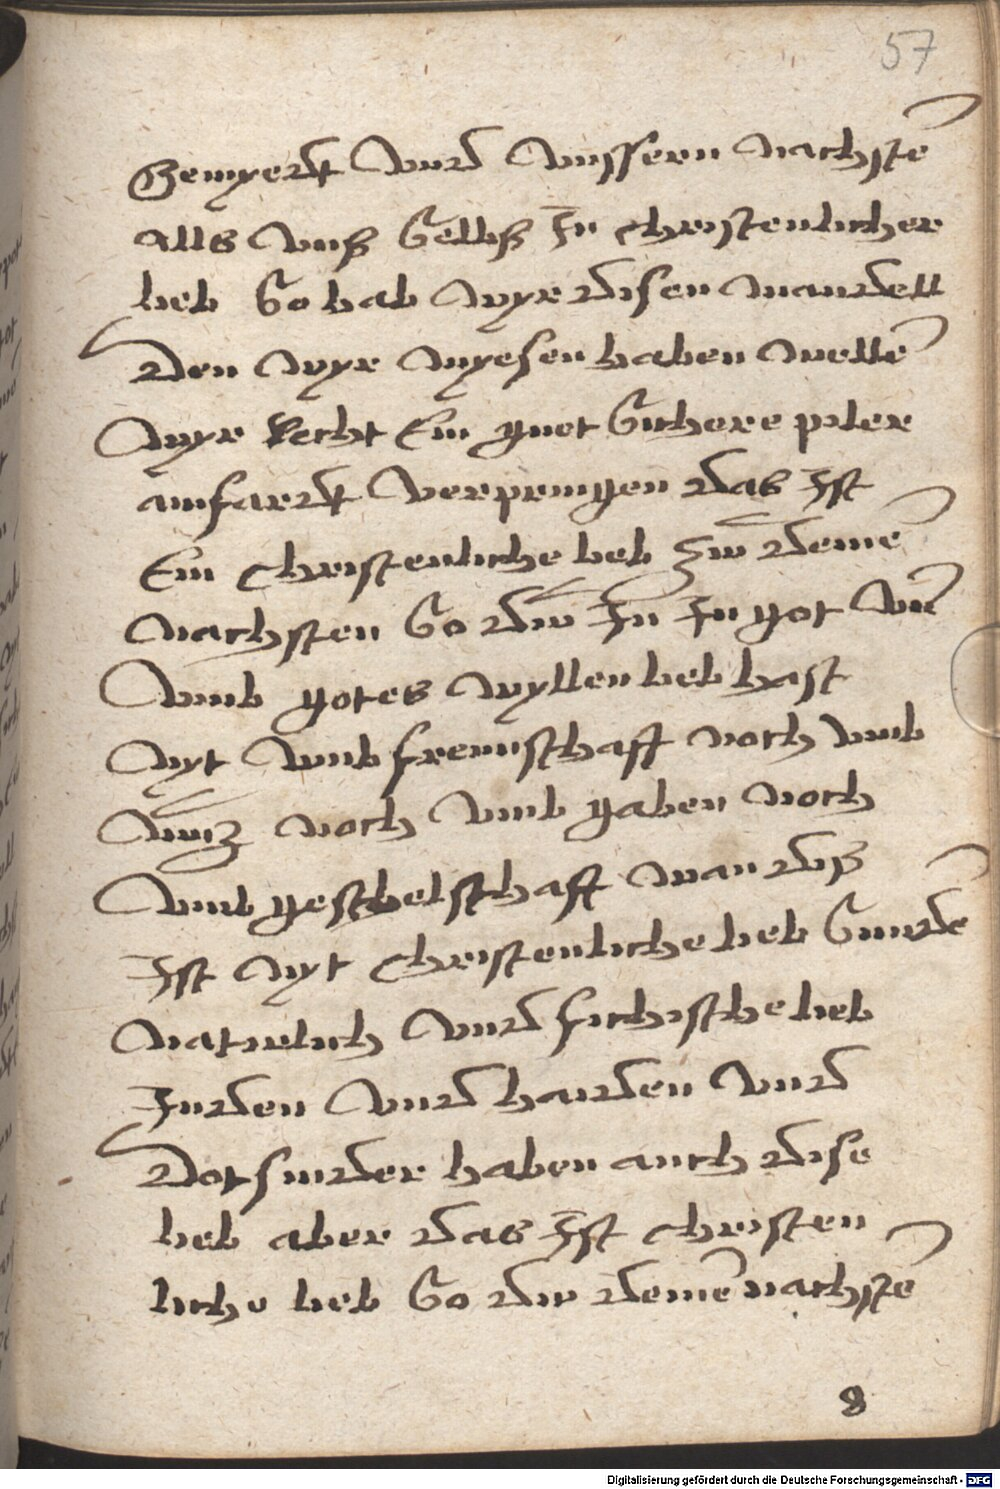 57
Gemyerdt vnd vnssern nachste
alls vnß Selbß Jn christenlicher
lieb So hab wyr disen mandell
Den wyr wyesen haben welle
wyr Recht Ein guot Sichere piler
amfardt verpringen das Jst
Ein christenliche lieb zw deine
nachsten So dw Jn Jn got vn
vmb gotes wyllen lieb hast
nyt vmb freuntschafft noch vmb
nutz noch vmb gaben noch
vmb geschelschafft wan diß
Jst nyt christenliche lieb Sunde
naturlich vnd fichische lieb
Juden vnd haiden vnd
Dotsunder haben auch dise
lieb aber das Jst christen
liche lieb So dw deine nachste
8
Digitalisierung gefördert durch die Deutsche Forschungsgemeinschaft - DFG